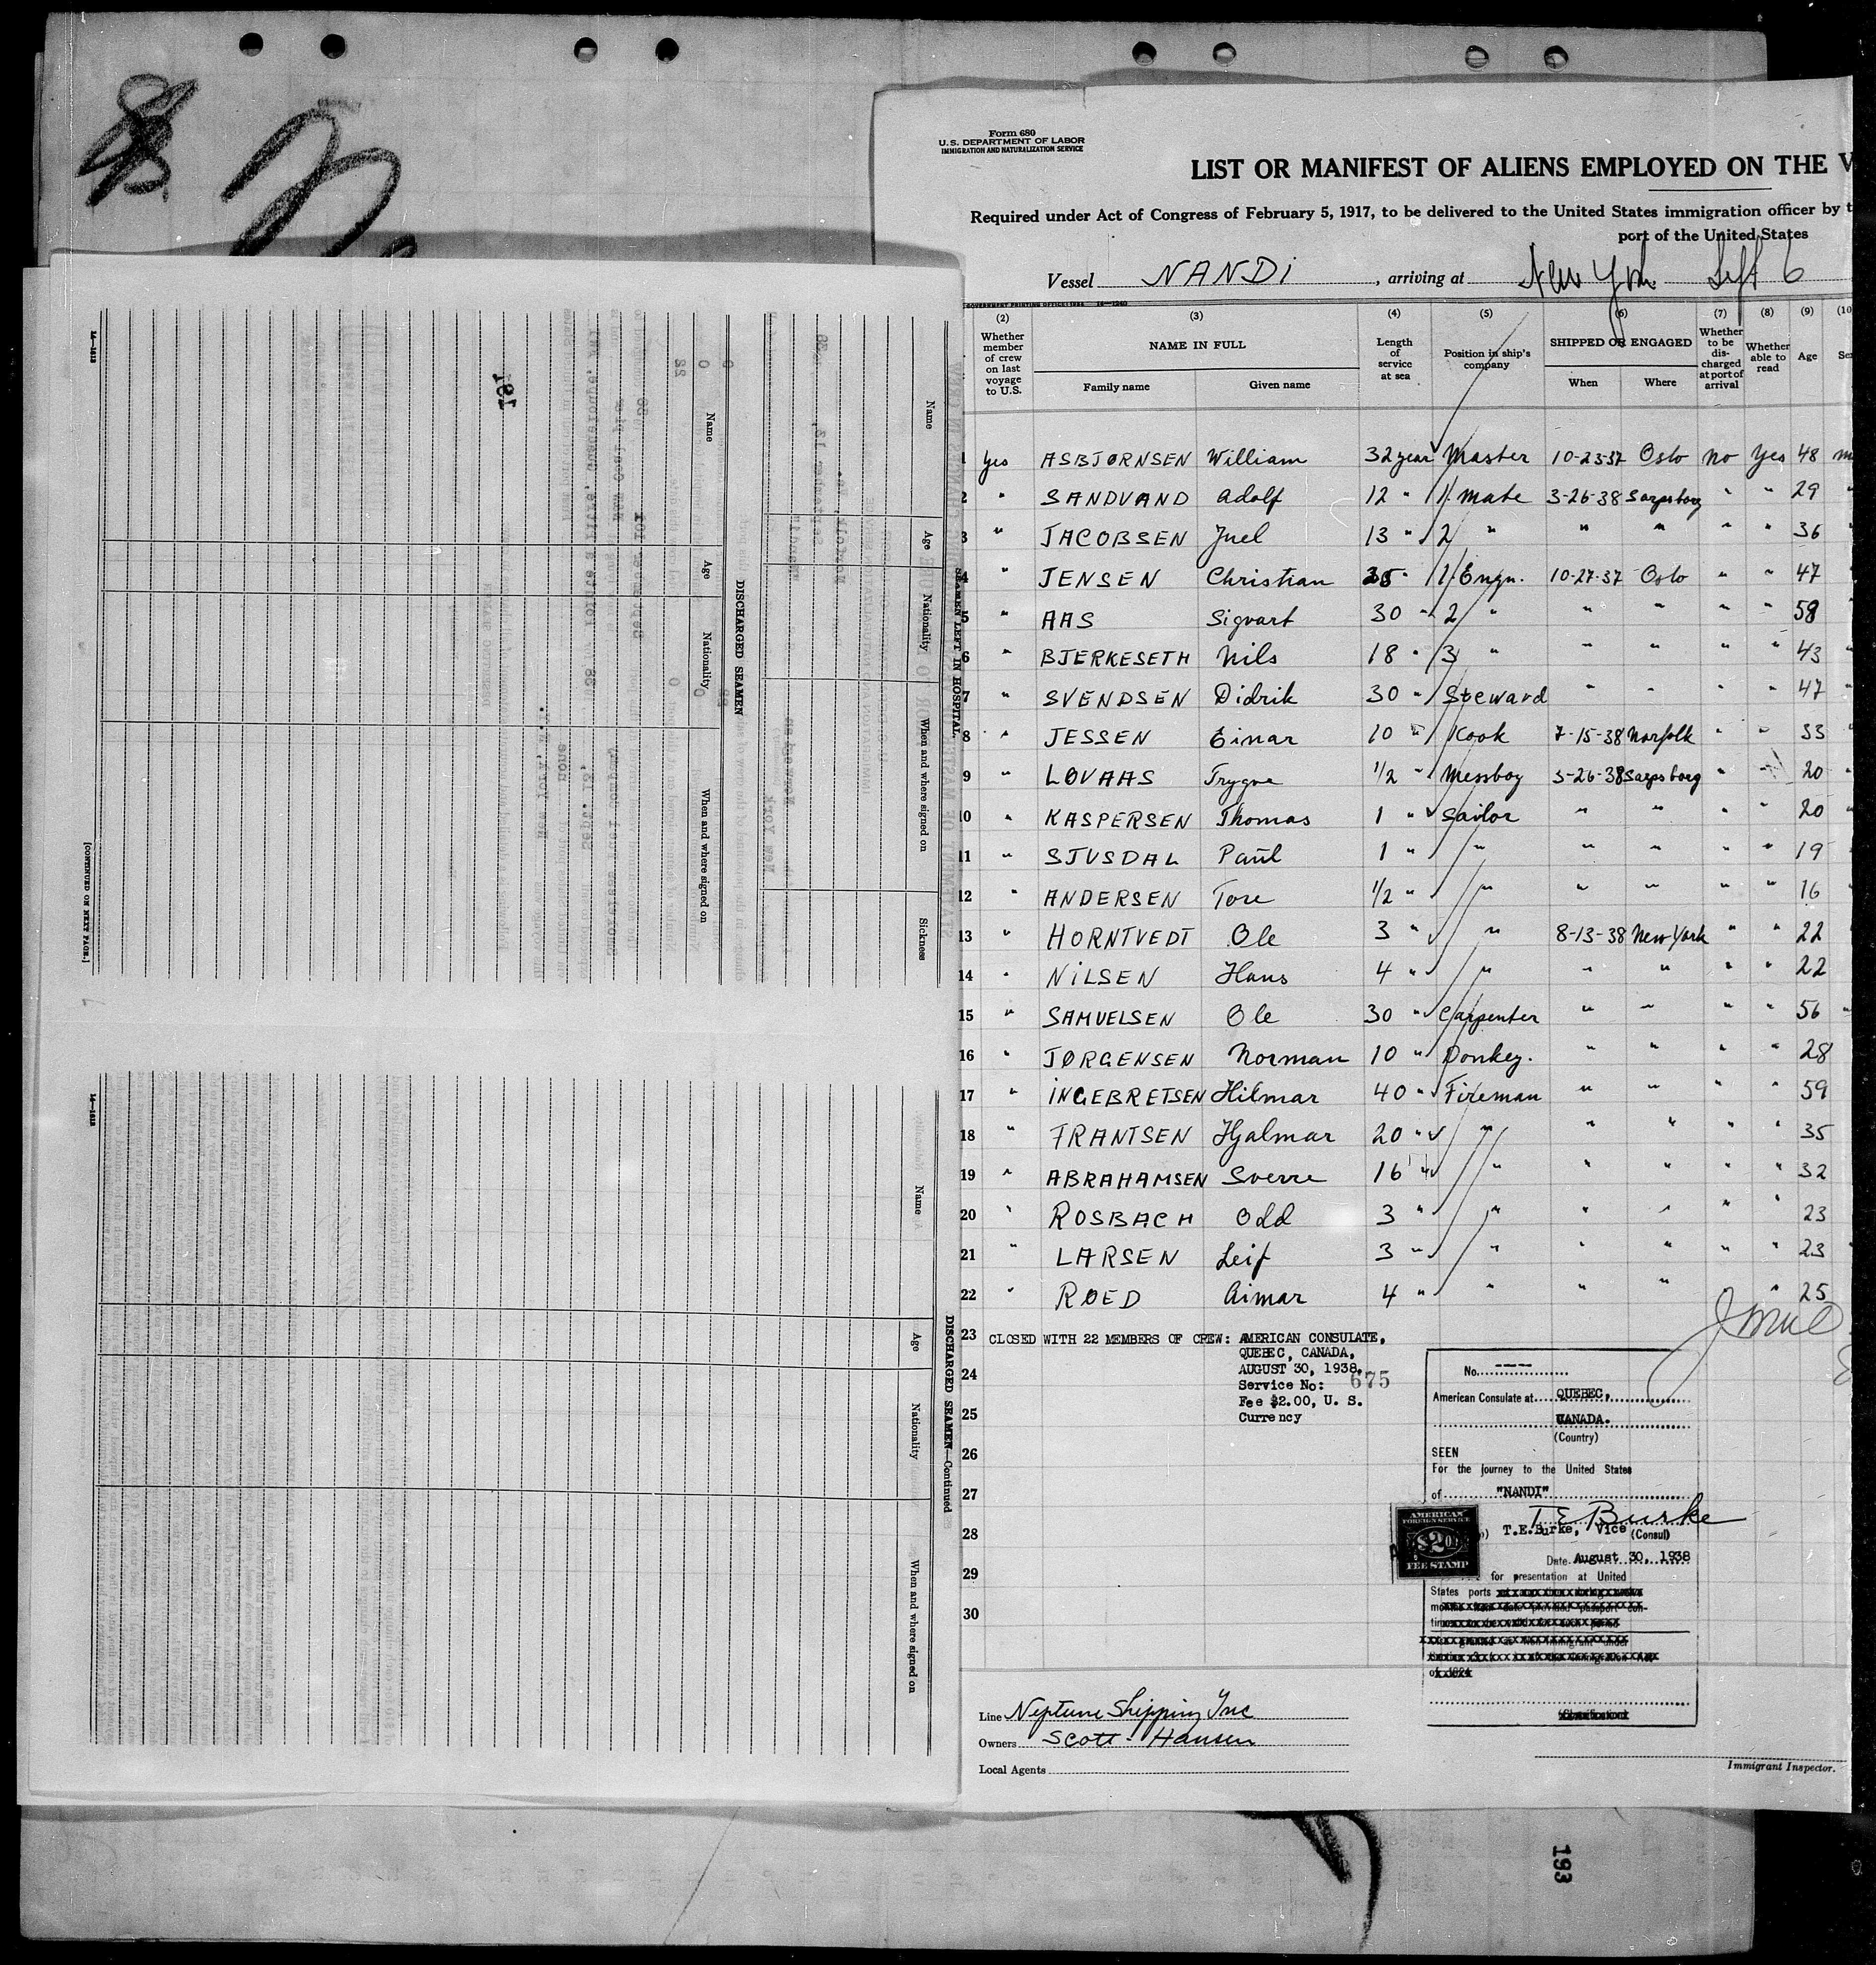 Form 680
U.S. DEPARTMENT OF LABOR
IMMIGRATION AND NATURALIZATION SERVICE
LIST OR MANIFEST OF ALIENS EMPLOYED ON THE V
Required under Act of Congress of February 5, 1917, to be delivered to the United States immigration officer by t
port of the United States
Vessel NANDI , arriving at New York Sept 6
(2) (3) (4) (5) (6) (7) (8) (9) (10
Whether member of crew on last voyage to U.S. NAME IN FULL Length of service at sea Position in ship's company SHIPPED OR ENGAGED Whether to be discharged at port of arrival Whether able to read Age Se
Family name Given name When Where
1 Yes ASBJØRNSEN William 32 year Master 10-23-37 Oslo No Yes 48 m
2 " SANDVAND Adolf 12 " 1. mate 3-26-38 Sarpsborg " " 29 "
3 " JACOBSEN Juel 13 " 2 " " " " " 36
4 " JENSEN Christian 35 " 1. Engn. 10-27-37 Oslo " " 47
5 " AAS Sigvart 30 " 2 " " " " " 58
6 " BJERKESETH Nils 18 " 3 " " " " " 43
7 " SVENDSEN Didrik 30 " Steward " " " " 47
8 " JESSEN Einar 10 " Kook 7-15-38 Norfolk " " 33
9 " LØVAAS Trygve 1/2 " Messboy 3-26-38 Sarpsborg " " 20
10 " KASPERSEN Thomas 1 " Sailor " " " " 20
11 " SJUSDAL Paul 1 " " " " " " 19
12 " ANDERSEN Tore 1/2 " " " " " " 16
13 " HORNTVEDT Ole 3 " " 8-13-38 New York " " 22
14 " NILSEN Hans 4 " " " " " " 22
15 " SAMUELSEN Ole 30 " Carpenter " " " " 56
16 " JØRGENSEN Norman 10 " Donkey. " " " " 28
17 " INGEBRETSEN Hilmar 40 " Fireman " " " " 59
18 " FRANTSEN Hjalmar 20 " " " " " " 35
19 " ABRAHAMSEN Sverre 16 " " " " " " 32
20 " ROSBACH Odd 3 " " " " " " 23
21 " LARSEN Leif 3 " " " " " " 23
22 " ROED Aimar 4 " " " " " 25
23 CLOSED WITH 22 MEMBERS OF CREW: AMERICAN CONSULATE,
QUEBEC, CANADA,
24 AUGUST 30, 1938.
Service No: 675
25 Fee $2.00, U. S.
Currency
26
27
28
29
30
No. ----
American Consulate at QUEBEC,
CANADA.
(Country)
SEEN
For the journey to the United States
of "NANDI"
T E Burke
T.E.Burke, Vice (Consul)
Date August 30, 1938
for presentation at United
States ports
AMERICAN
FOREIGN SERVICE
$2.00
FEE STAMP
Line Neptune Shipping Inc
Owners Scott Hansen
Local Agents
Immigrant Inspector.
193
SEAMEN LEFT IN HOSPITAL.
Name Age Nationality When and where signed on Sickness
DISCHARGED SEAMEN
Name Age Nationality When and where signed on
[CONTINUED ON NEXT PAGE.]
14—1213
DISCHARGED SEAMEN—Continued
Name Age Nationality When and where signed on
14—1213